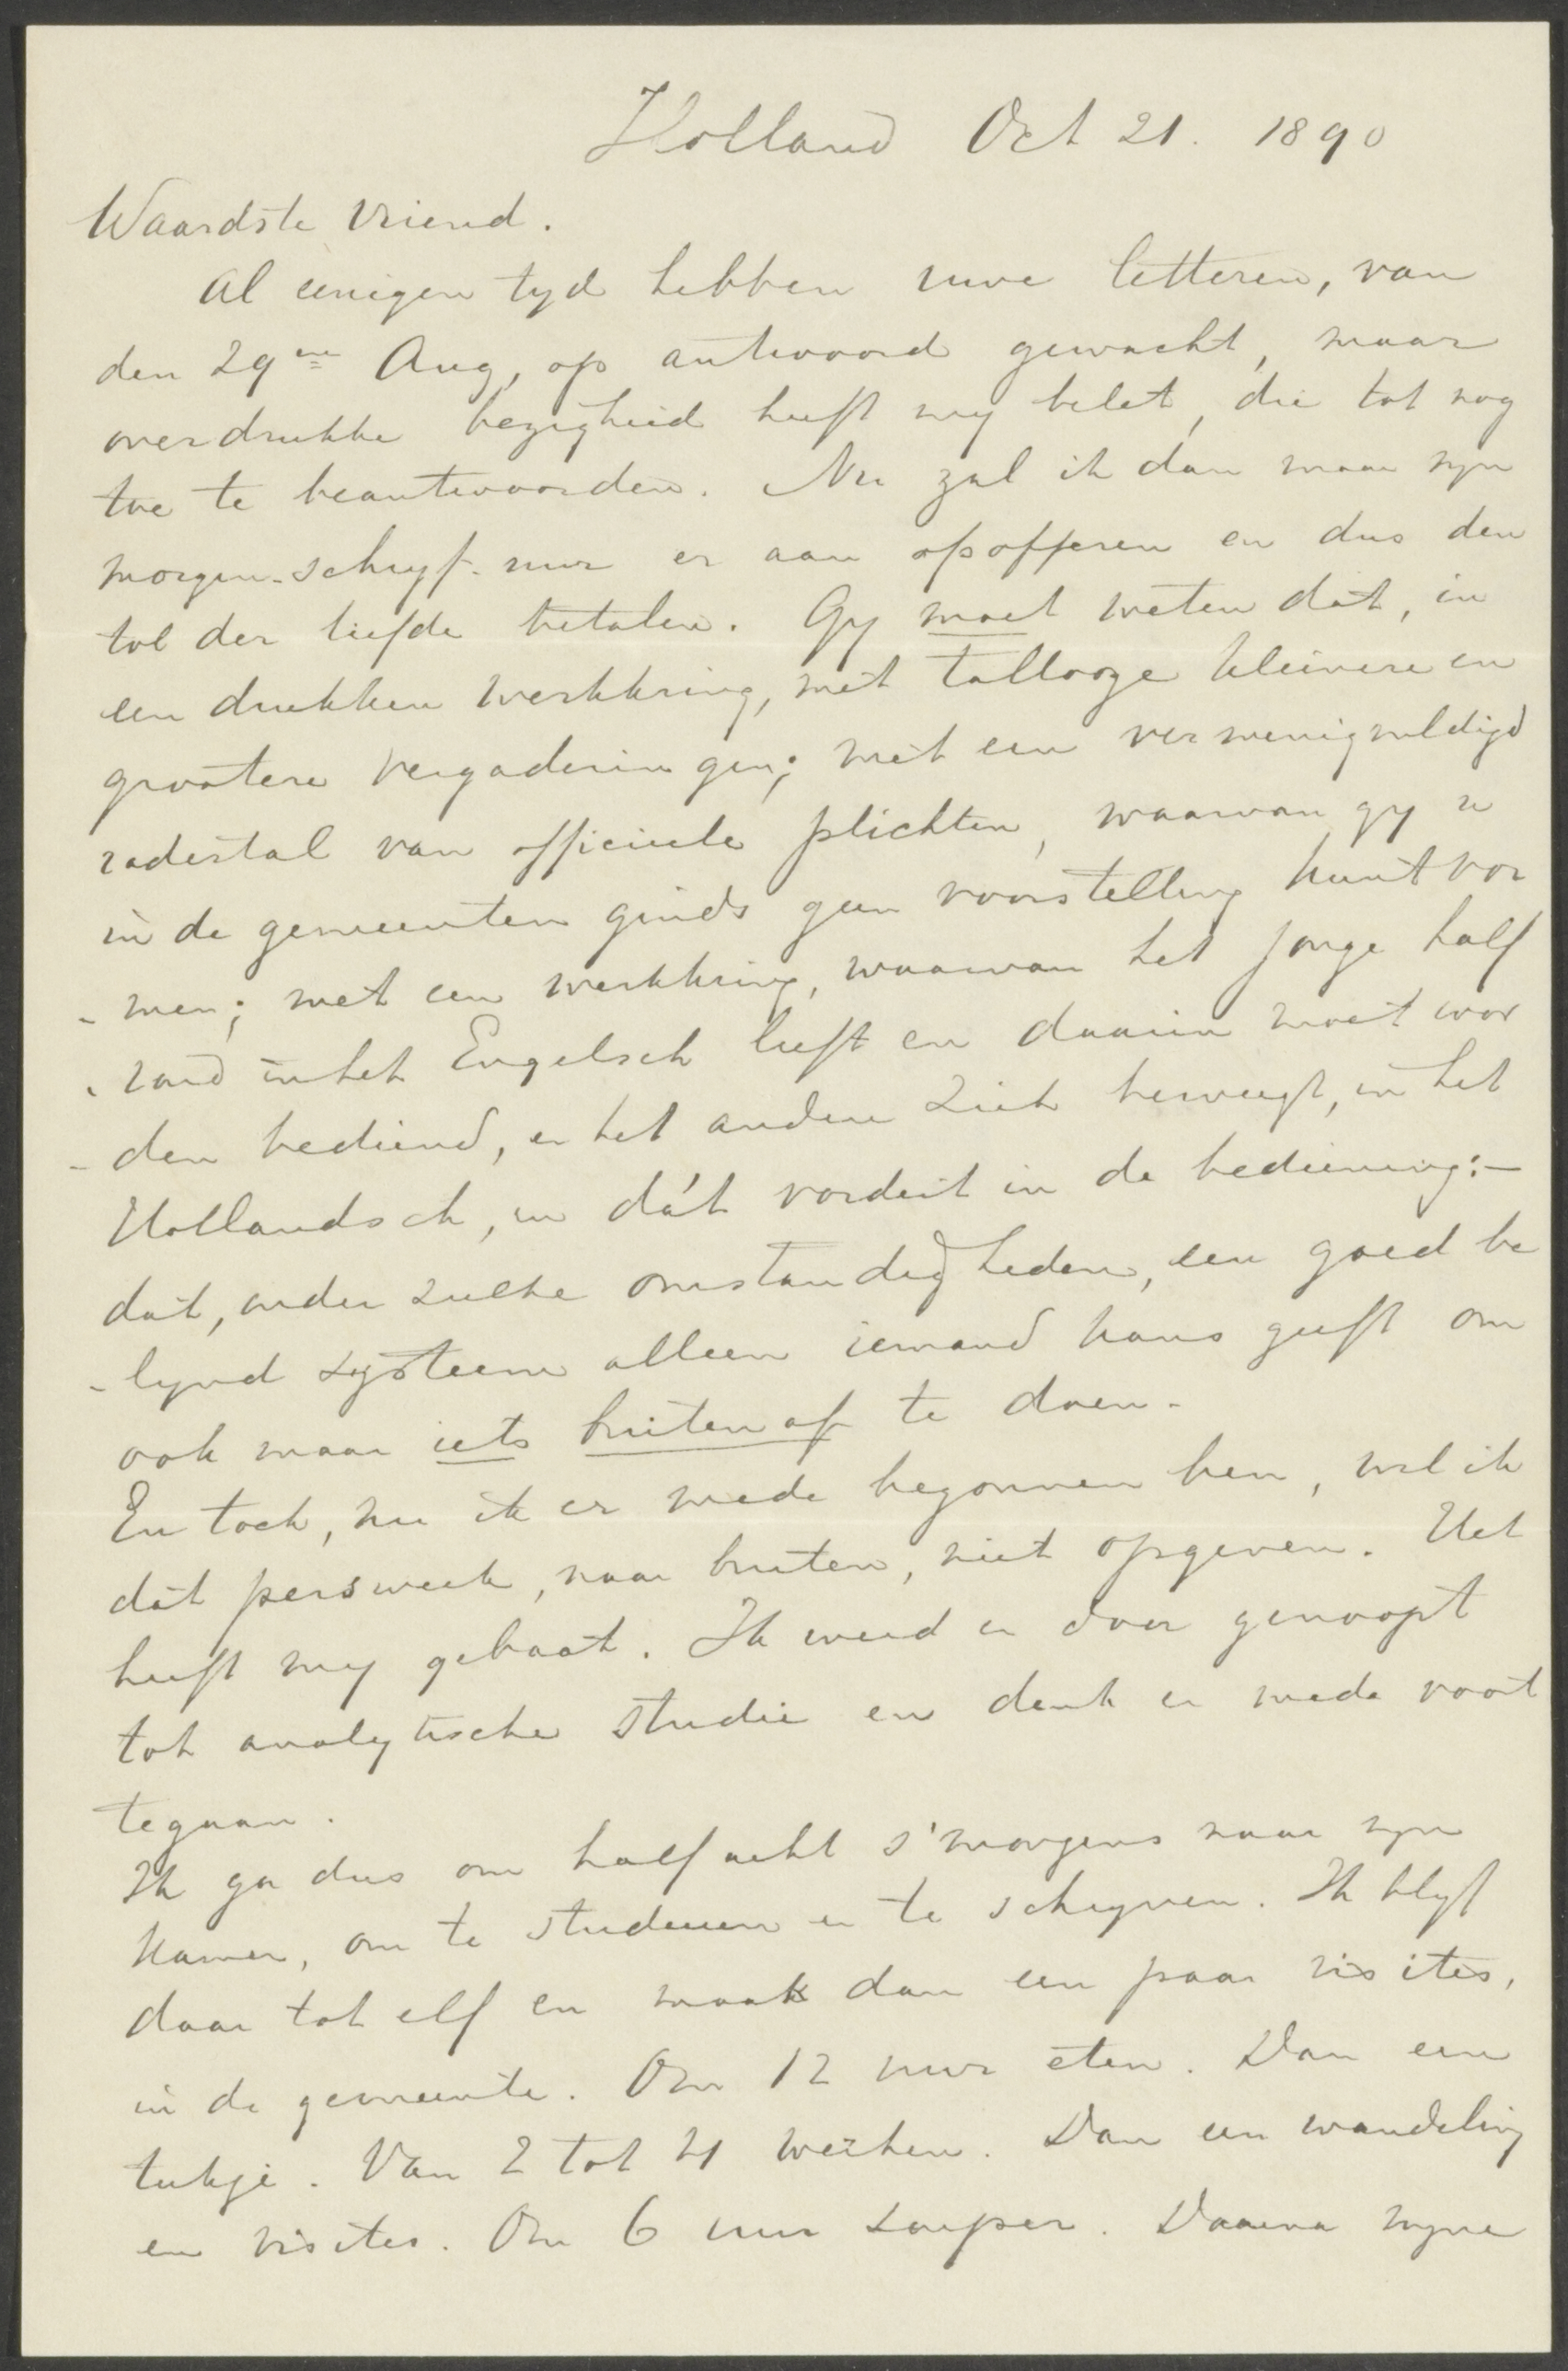 Holland Oct 21. 1890
Waardste Vriend.
Al eenigen tyd hebben uwe letteren, van
den 29en Aug, op antwoord gewacht, maar
overdrukke bezigheid heeft my belet, die tot nog
toe te beantwoorden. Nu zal ik dan maar myn
morgen-schryf-uur er aan opofferen en dus den
tol der liefde betalen. Gy moet weten dat, in
een drukken werkkring, met tallooze kleinere en
grootere vergaderingen; met een vermenigvuldigd
radertal van officieele plichten, waarvan gy u
in de gemeenten ginds geen voorstelling kunt vor
- men; met een werkkring, waarvan het jonge half
- rond in het Engelsch leeft en daarin moet wor
- den bediend, en het andere zich beweegt, in het
Hollandsch, en dát vordert in de bediening:-
dat, onder zulke omstandigheden, een goed be
- lynd systeem alleen iemand kans geeft om
ook maar iets buiten af te doen.
En toch, nu ik er mede begonnen ben, wil ik
dat perswerk, naar buiten, niet opgeven. Het
heeft my gebaat. Ik werd er door genoopt
tot analytische studie en denk er mede voort
te gaan.
Ik ga dus om half acht s'morgens naar myn
Kamer, om te studeeren en te schryven. Ik blyf
daar tot elf en maak dan een paar visites,
in de gemeente. Om 12 uur eten. Dan een
tukje. Van 2 tot 4 werken. Dan een wandeling
en visites. Om 6 uur souper. Daarna myne